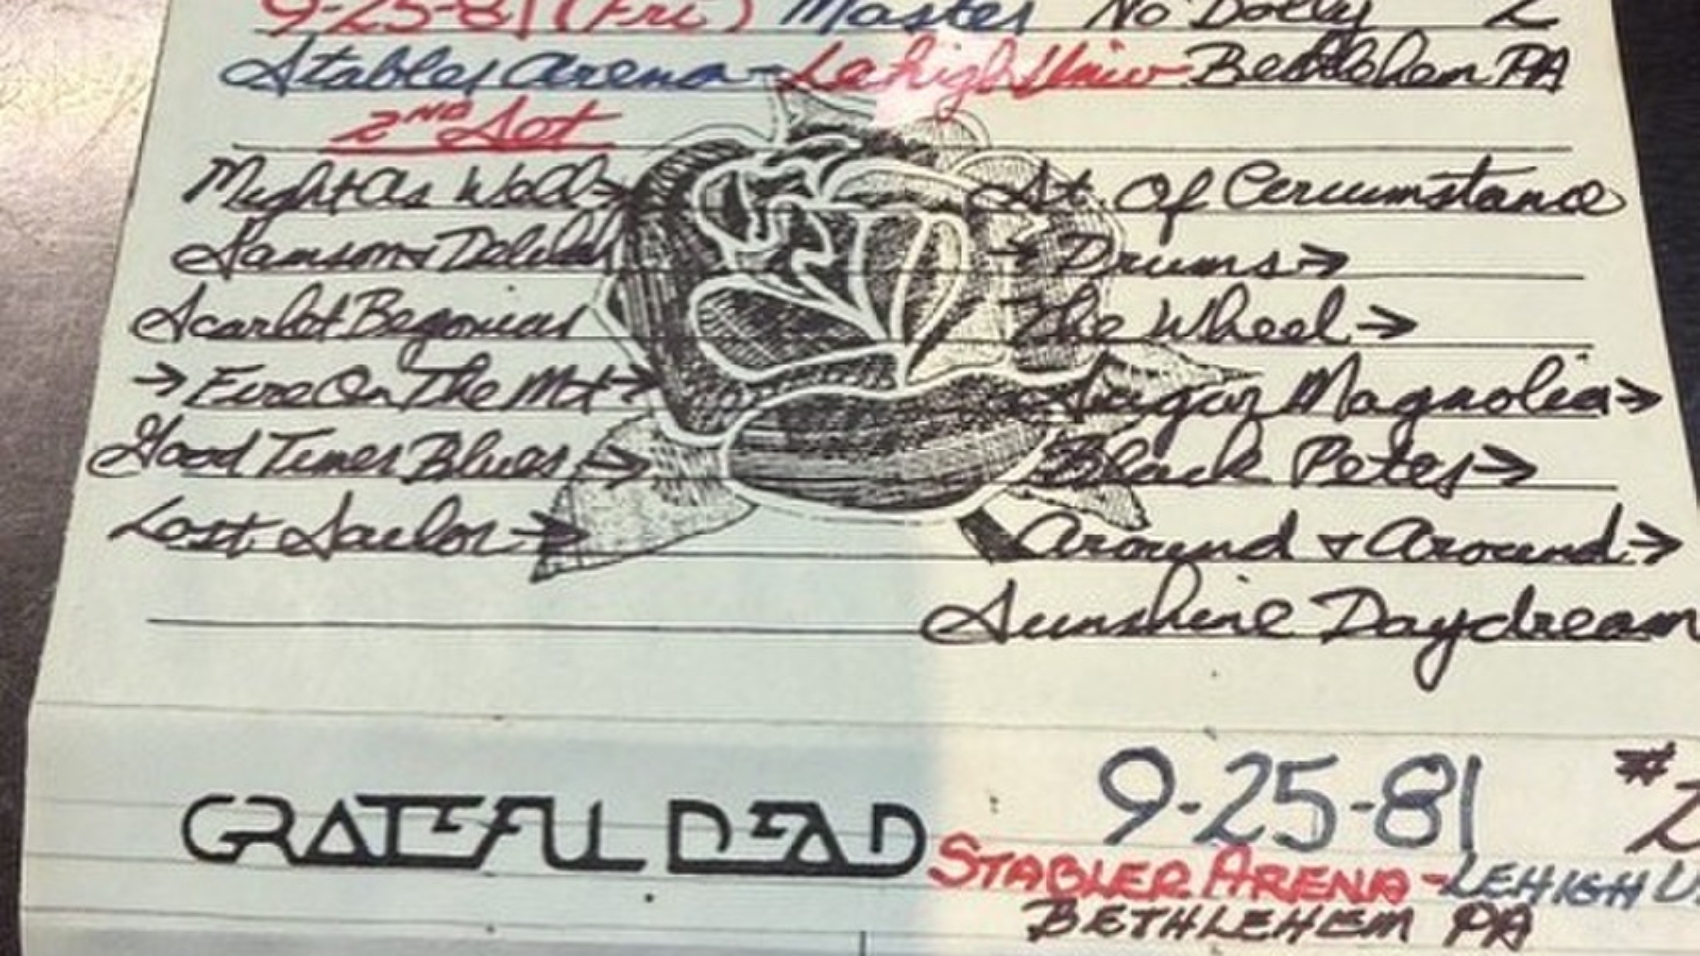 9-25-81 (Fri) Master No Dolby 2
Stabler Arena-Lehigh Univ-Bethlehem PA
2ND Set
Might As Well→
Samson & Delilah
Scarlet Begonias
→ Fire On The Mt→
Good Times Blues→
Lost Sailor→
St. Of Circumstance
→ Drums→
The Wheel→
Sugar Magnolia→
Black Peter→
Around & Around→
Sunshine Daydream
GRATEFUL DEAD
9-25-81 #2
STABLER ARENA-LEHIGH U
BETHLEHEM PA